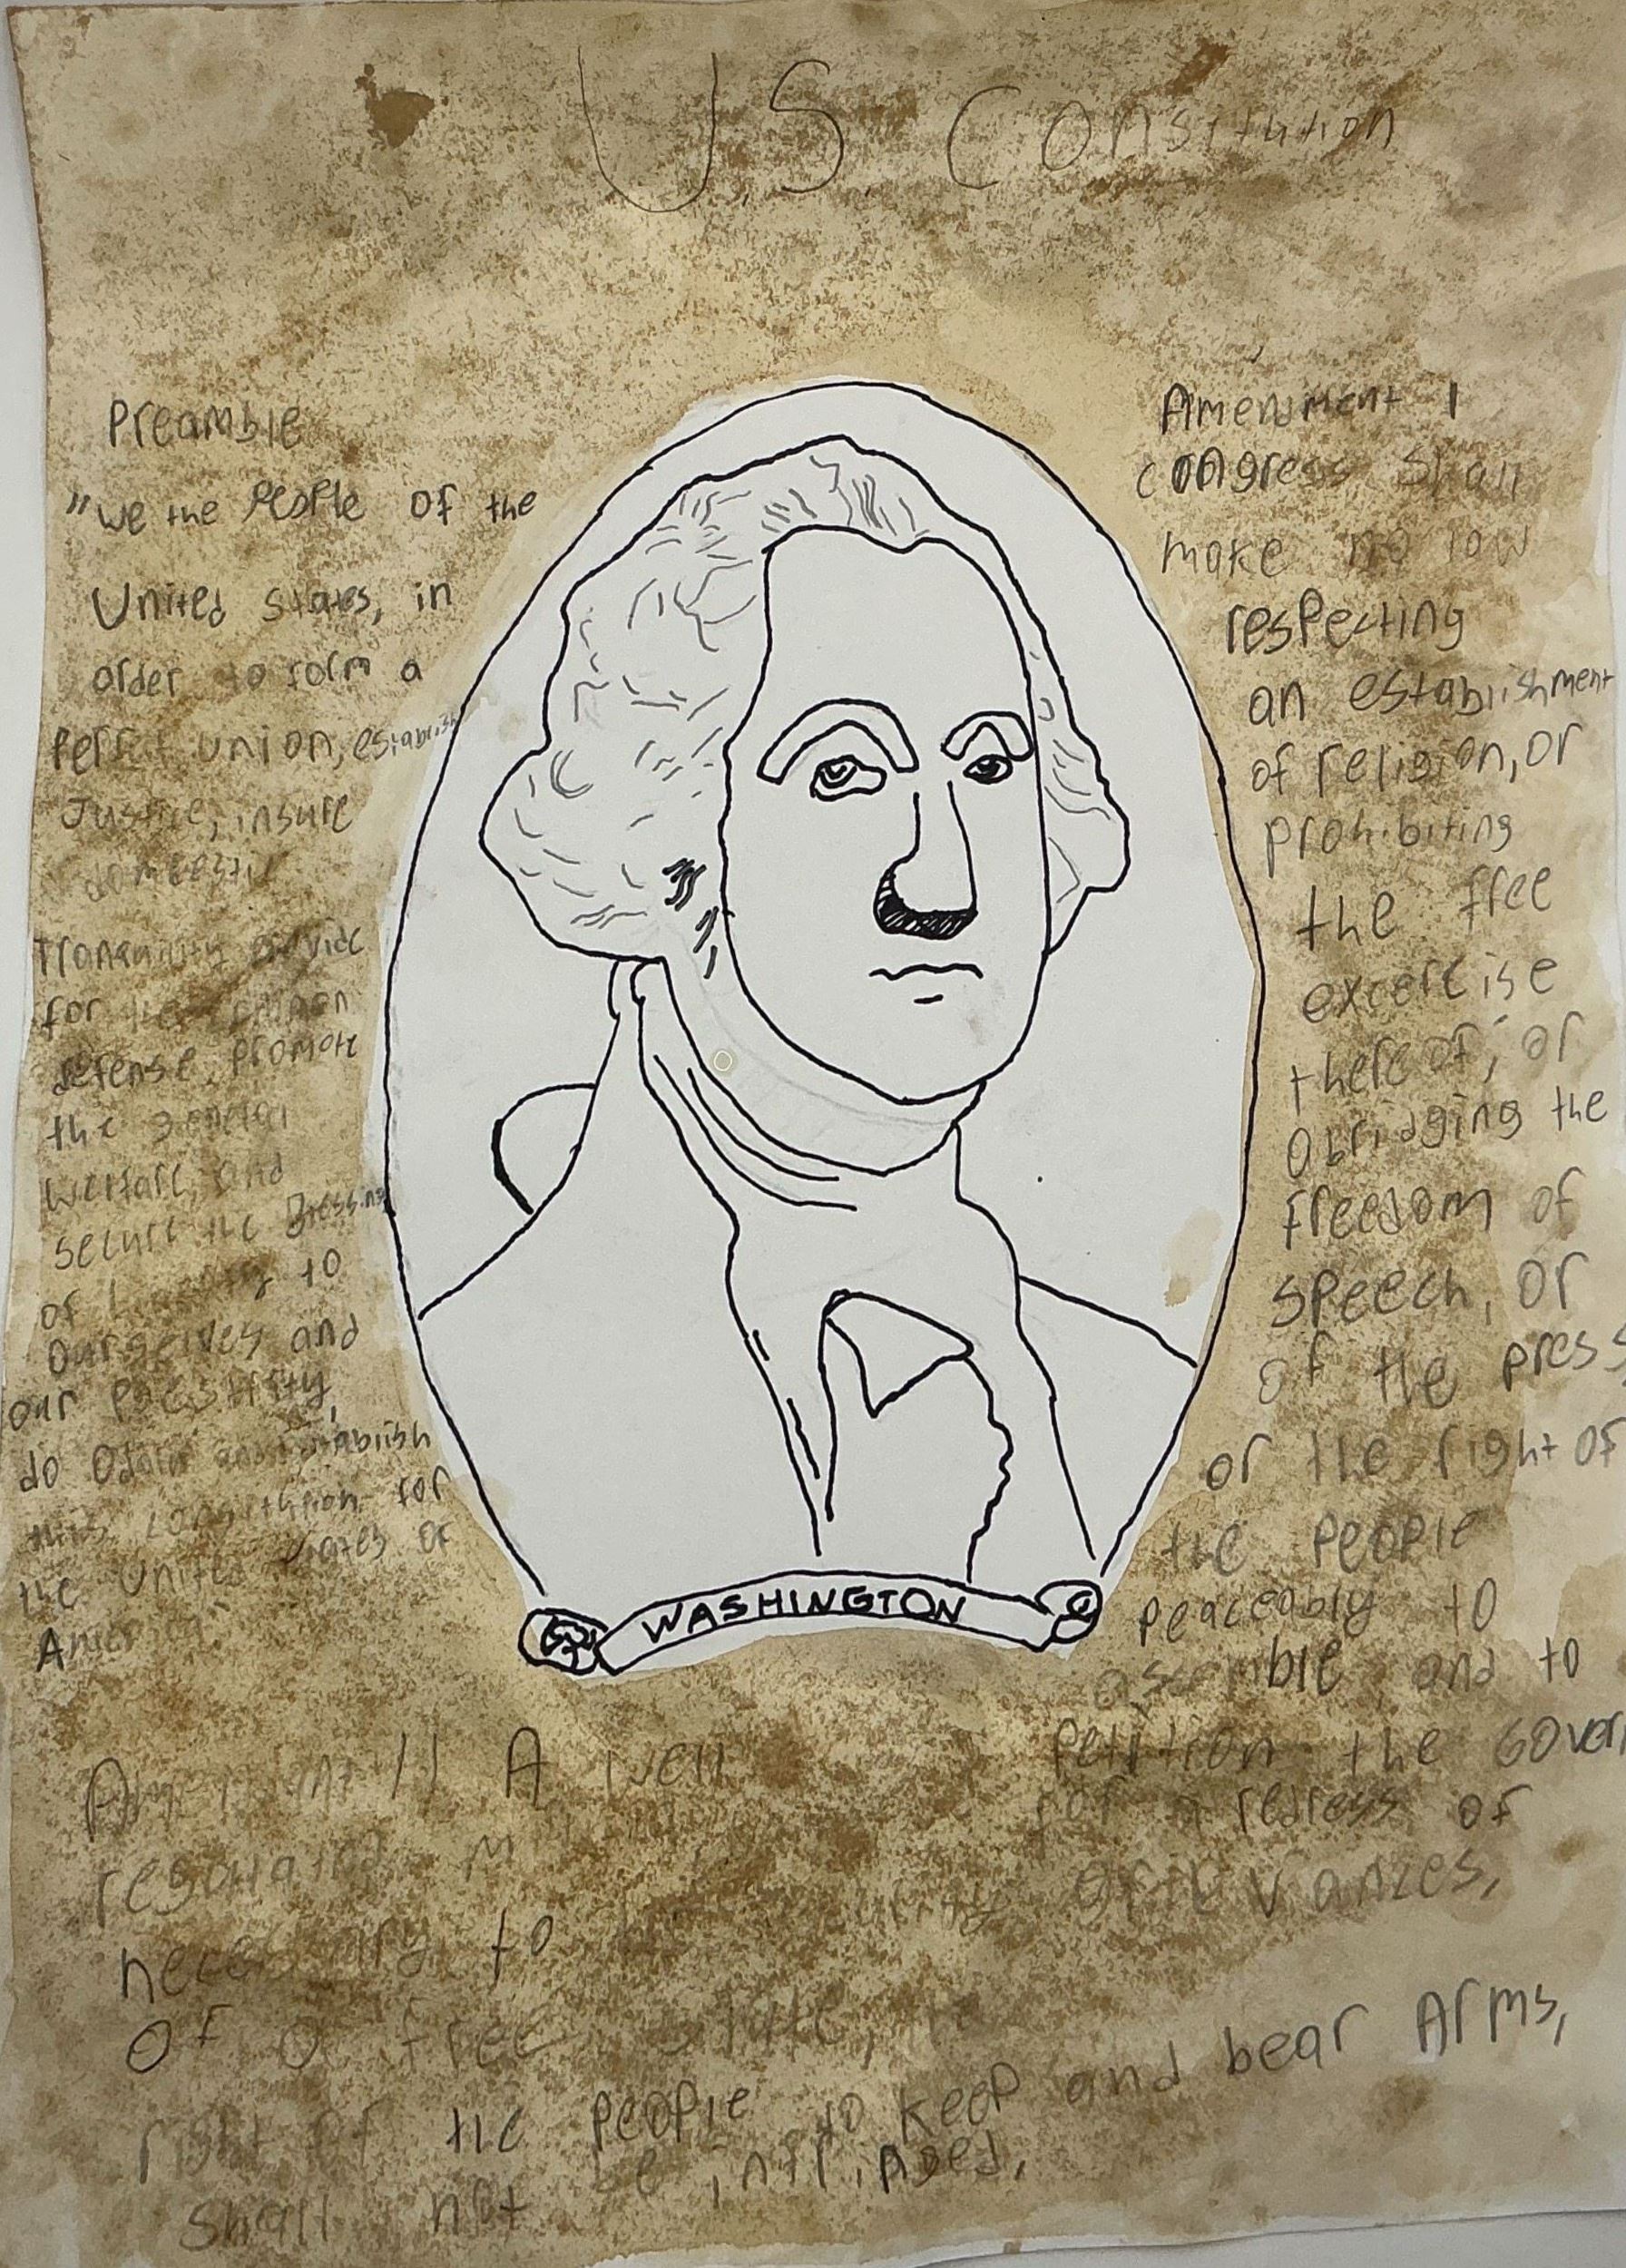 U.S. Consitution
Preamble
"We the People of the
United States, in
order to form a
Perfect union, establish
Justice, insure
domeestic
Tranquility Provide
for the common
defense, promote
the general
welfare, and
secure the Blessings
of to
ourselves and
our
do establish
this for
the United States of
America
WASHINGTON
Amendment 1
congress shall
make no law
respecting
an establishment
of religion, or
prohibiting
the free
exercise
thereof; or
abridging the
freedom of
speech, or
of the press,
or the right of
the people
peaceably to
assemble and to
petition the Govern
for a redress of
grievances,
Amendment II A well
regulated
necessary to
of a free state,
right of the people to keep and bear Arms,
shall not be infringed.